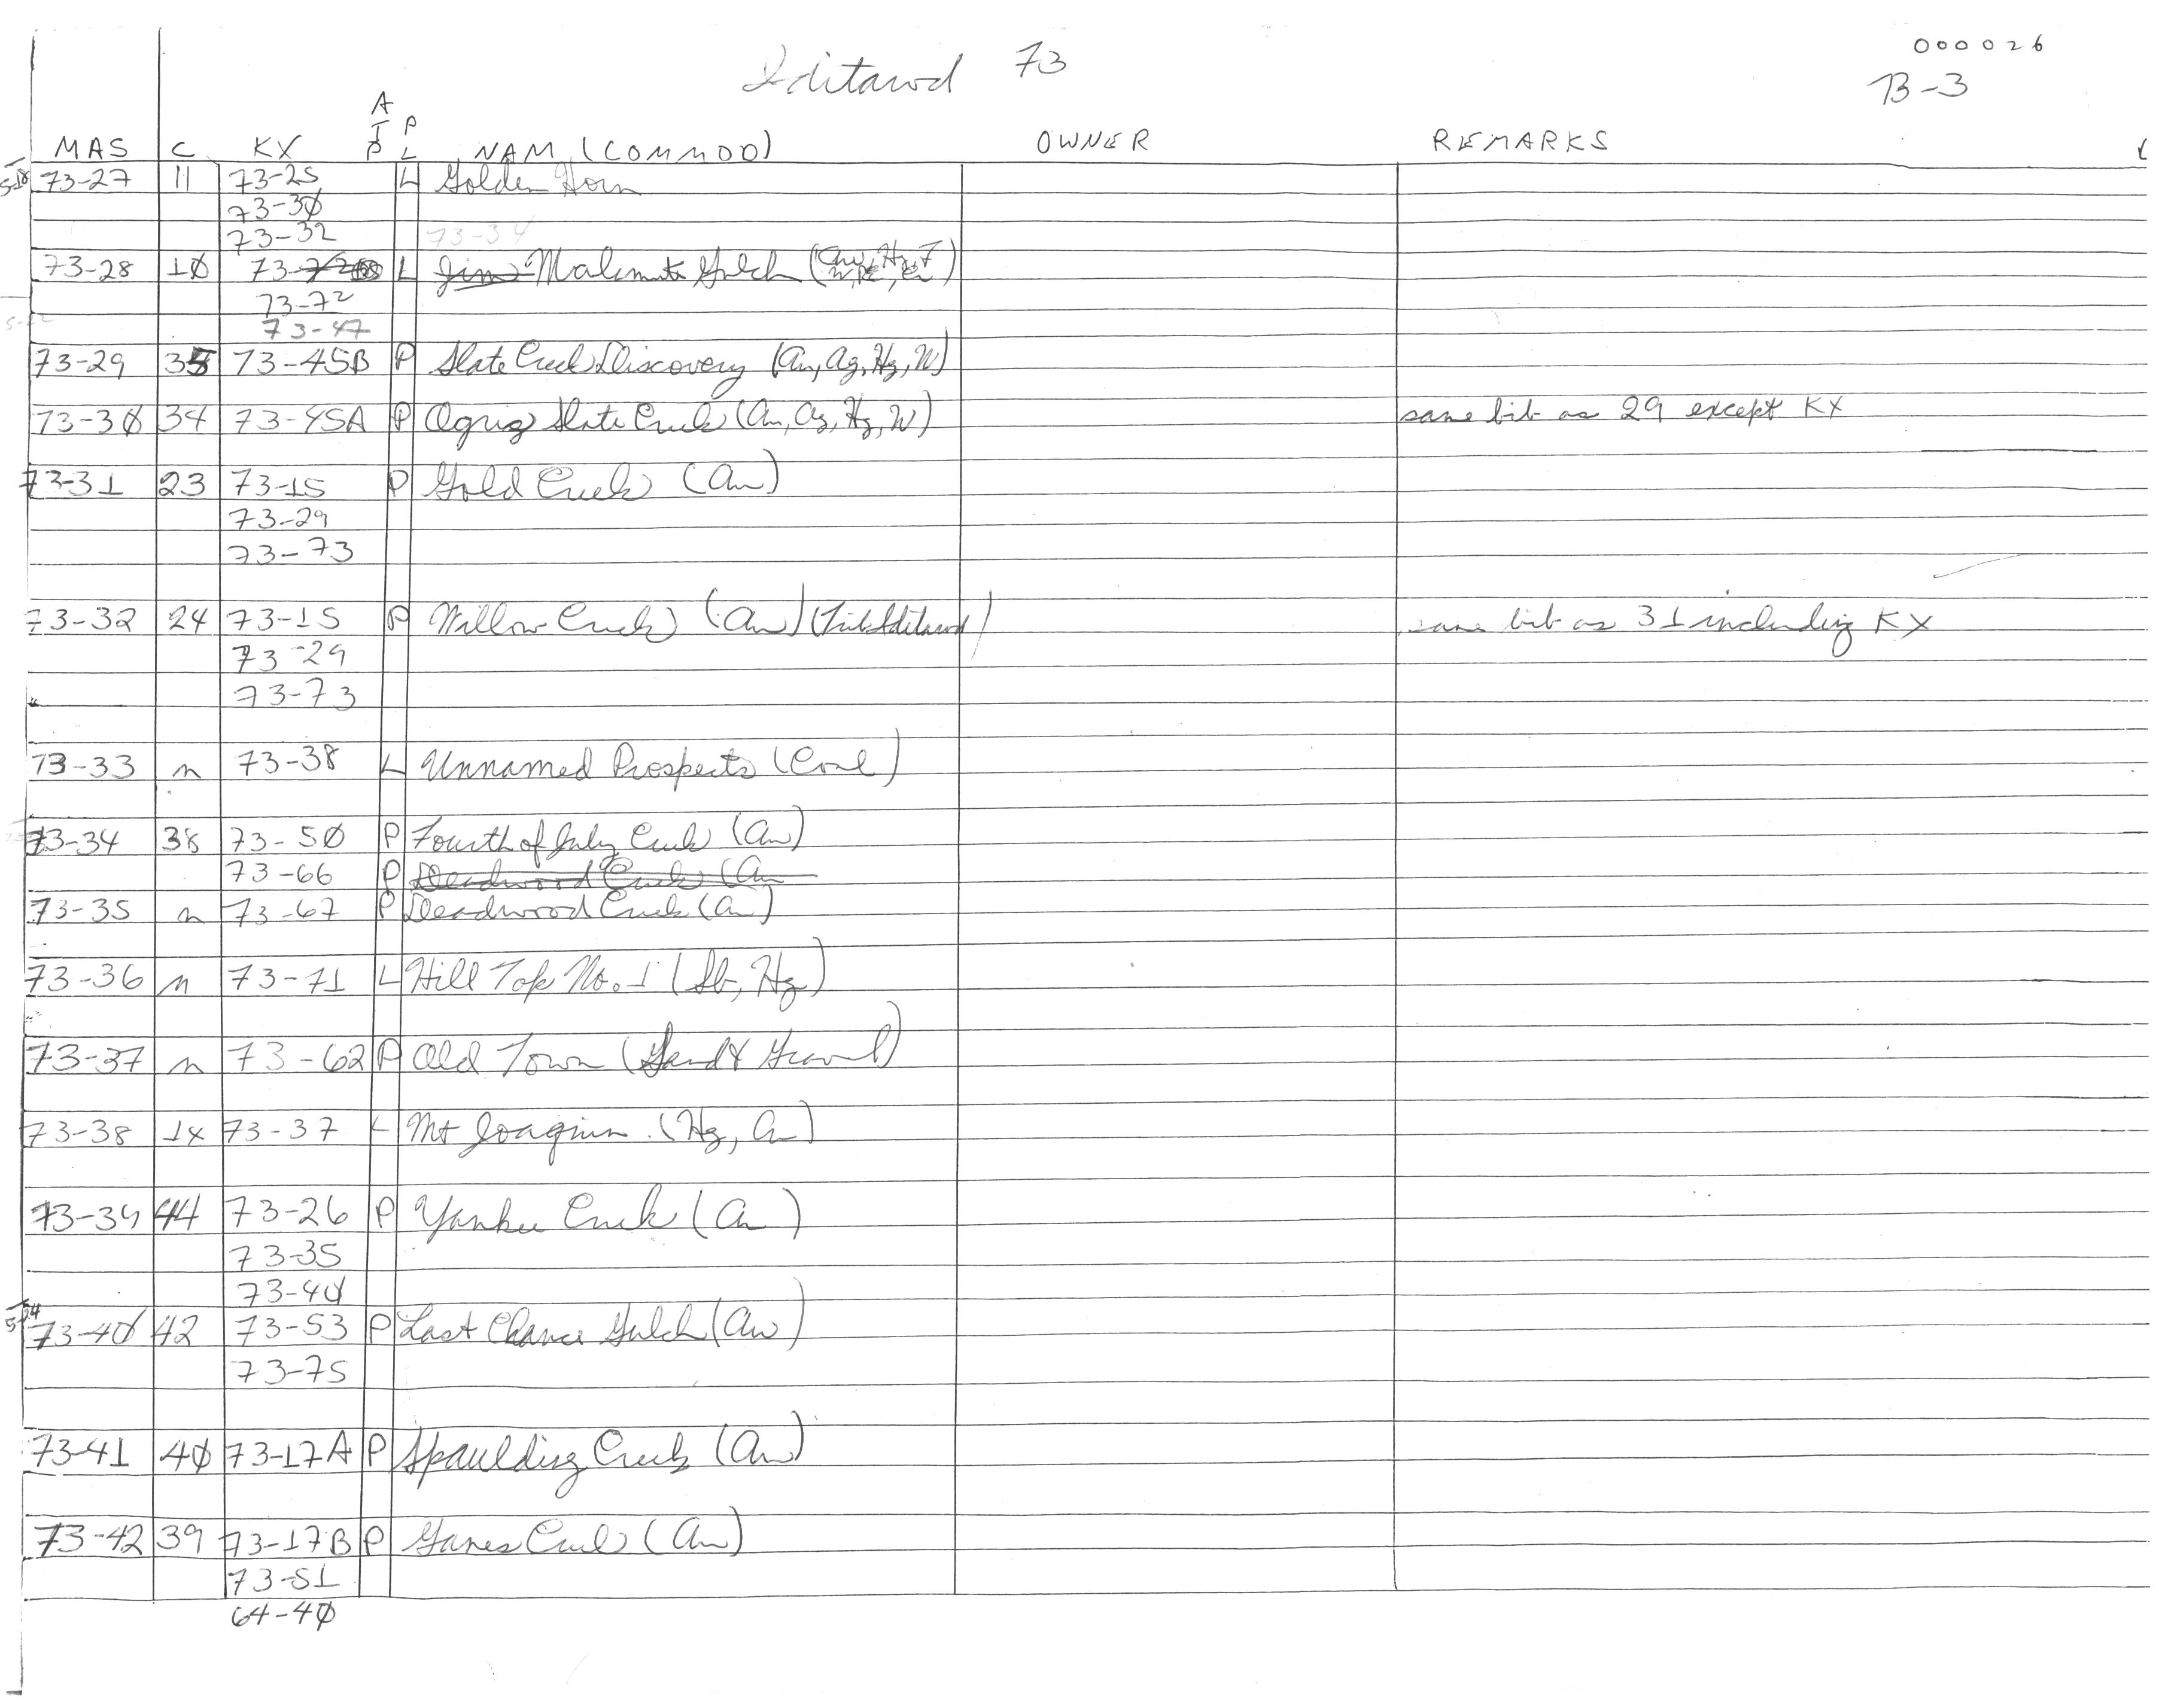 000026
Iditarod 73
73-3
A
T P
P L
MAS C KX NAM (COMMOD) OWNER REMARKS
5-18 73-27 11 73-25 L Golden Horn
73-3Ø
73-32 73-34
73-28 1Ø L Malemute Gulch
73-72
73-47
73-29 35 73-45B P Slate Creek Discovery (Au, Ag, Hg, W)
73-3Ø 34 73-45A P Slate Creek (Au, Ag, Hg, W) same bib as 29 except KX
73-31 23 73-15 P Gold Creek (Au)
73-29
73-73
73-32 24 73-15 P Willow Creek (Au) (Trib Iditarod) same bib as 31 including KX
73-29
73-73
73-33 n 73-38 L Unnamed Prospects (Coal)
73-34 38 73-5Ø P Fourth of July Creek (Au)
73-66 P Deadwood Creek (Au
73-35 n 73-67 P Deadwood Creek (Au)
73-36 n 73-71 L Hill Top No. 1 (Sb, Hg)
73-37 n 73-62 P Old Town (Sand & Gravel)
73-38 1x 73-37 L Mt Joaquin (Hg, Au)
73-39 44 73-26 P Yankee Creek (Au)
73-35
73-4Ø
5-24 73-4Ø 42 73-53 P Last Chance Gulch (Au)
73-75
73-41 4Ø 73-17A P Spaulding Creek (Au)
73-42 39 73-17B P Ganes Creek (Au)
73-51
64-4Ø